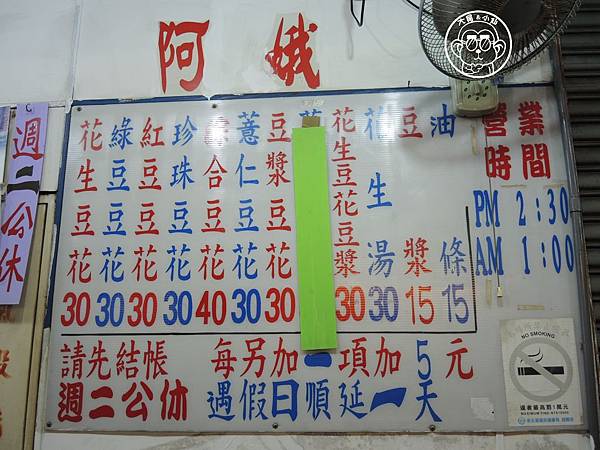 阿娥
花生豆花 30
綠豆豆花 30
紅豆豆花 30
珍珠豆花 30
綜合豆花 40
薏仁豆花 30
豆漿豆花 30
花生豆花豆漿 30
花生湯 30
豆漿 15
油條 15
營業時間
PM 2:30
AM 1:00
請先結帳 每另加一項加5元
週二公休 遇假日順延一天
週二公休
NO SMOKING
大胃&小姐